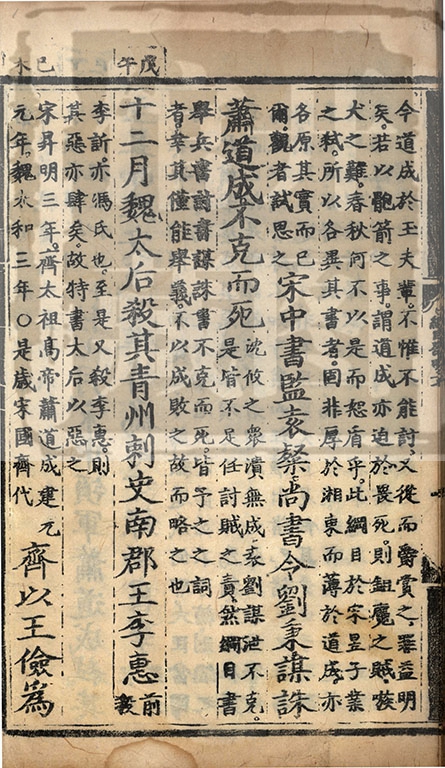 戊午
己未
今道成於王夫輩。不惟不能討。又從而爵賞之。罪益明
矣。若以骲箭之事。謂道成亦迫於畏死。則鉏麑之賊。嗾
犬之難。春秋何不以是而恕盾乎。此綱目於宋昱子業
之弑。所以各異其書者。固非厚於湘東而薄於道成。亦
各原其實而已
爾。觀者試思之
宋中書監袁粲尚書令劉秉謀誅
蕭道成不克而死
沈攸之衆潰無成。袁劉謀泄不克。
是皆不足任討賊之責。然綱目書
舉兵。書討。書謀誅。書不克而死。皆予之之詞
者。幸其僅能舉義。不以成敗之故而略之也
十二月魏太后殺其青州刺史南郡王李惠
前
殺
李訢。亦馮氏也。至是又殺李惠。則
其惡亦肆矣。故特書太后以惡之
宋昇明三年。齊太祖高帝蕭道成建元
元年。魏太和三年〇是歲宋國齊代
齊以王儉爲